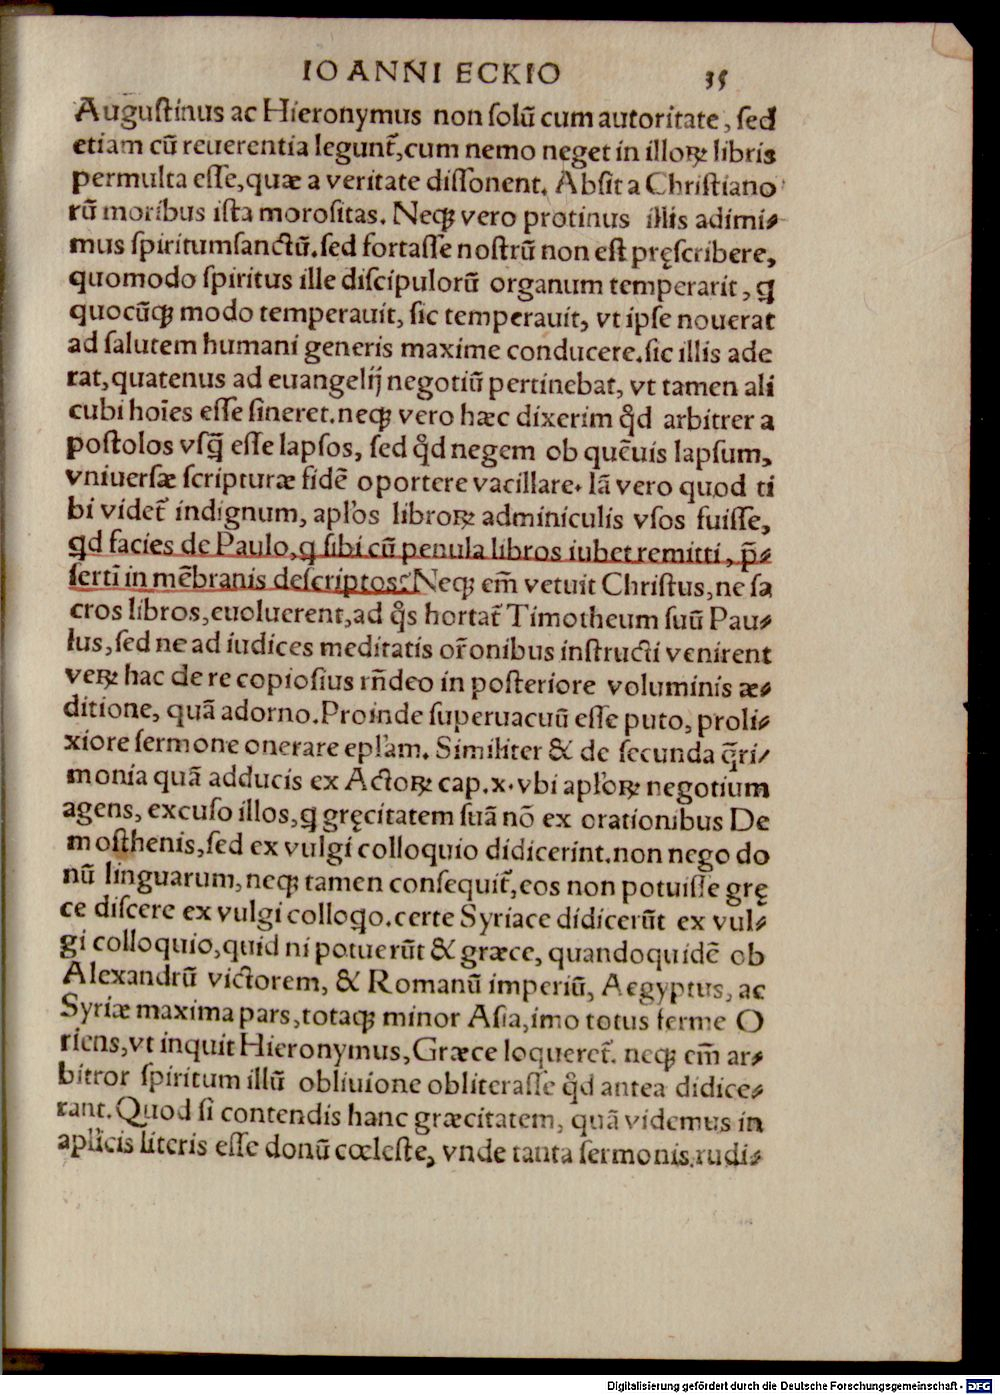 IOANNI ECKIO 35
Augustinus ac Hieronymus non ſolũ cum autoritate, ſed
etiam cũ reuerentia legunt᷑, cum nemo neget in illoꝝ libris
permulta eſſe, quæ a veritate diſſonent. Abſit a Chriſtiano
rũ moribus iſta moroſitas. Neqꝫ vero protinus illis adimi⸗
mus ſpiritumſanctũ. ſed fortaſſe noſtrũ non eſt pręſcribere,
quomodo ſpiritus ille diſcipulorũ organum temperarit, ꝗ
quocũqꝫ modo temperauit, ſic temperauit, vt ipſe nouerat
ad ſalutem humani generis maxime conducere. ſic illis ade
rat, quatenus ad euangelij negotiũ pertinebat, vt tamen ali
cubi hoĩes eſſe ſineret. neqꝫ vero hæc dixerim qͥd arbitrer a
poſtolos vſq̃ eſſe lapſos, ſed qͥd negem ob quẽuis lapſum,
vniuerſæ ſcripturæ fidẽ oportere vacillare. Iã vero quod ti
bi videt᷑ indignum, apl̓os libroꝝ adminiculis vſos fuiſſe,
qͥd facies de Paulo, ꝗ ſibi cũ penula libros iubet remitti, p̃⸗
ſertĩ in mẽbranis deſcriptos? Neqꝫ em̃ vetuit Chriſtus, ne ſa
cros libros, euoluerent, ad qͥs hortat᷑ Timotheum ſuũ Pau⸗
lus, ſed ne ad iudices meditatis or̃onibus inſtructi venirent
veꝝ hac de re copioſius rñdeo in poſteriore voluminis æ⸗
ditione, quã adorno. Proinde ſuperuacuũ eſſe puto, proli⸗
xiore ſermone onerare epl̓am. Similiter & de ſecunda q̃ri⸗
monia quã adducis ex Actoꝝ cap. x. vbi apl̓oꝝ negotium
agens, excuſo illos, ꝗ gręcitatem ſuã nõ ex orationibus De
moſthenis, ſed ex vulgi colloquio didicerint. non nego do
nũ linguarum, neqꝫ tamen conſequit᷑, eos non potuiſſe grę
ce diſcere ex vulgi colloꝗo. certe Syriace didicerũt ex vul⸗
gi colloquio, quid ni potuerũt & græce, quandoquidẽ ob
Alexandrũ victorem, & Romanũ imperiũ, Aegyptus, ac
Syriæ maxima pars, totaqꝫ minor Aſia, imo totus ferme O
riens, vt inquit Hieronymus, Græce loqueret᷑. neqꝫ em̃ ar⸗
bitror ſpiritum illũ obliuione obliteraſſe qͥd antea didice⸗
rant. Quod ſi contendis hanc græcitatem, quã videmus in
apl̓icis literis eſſe donũ cœleſte, vnde tanta ſermonis rudi⸗
Digitalisierung gefördert durch die Deutsche Forschungsgemeinschaft - DFG